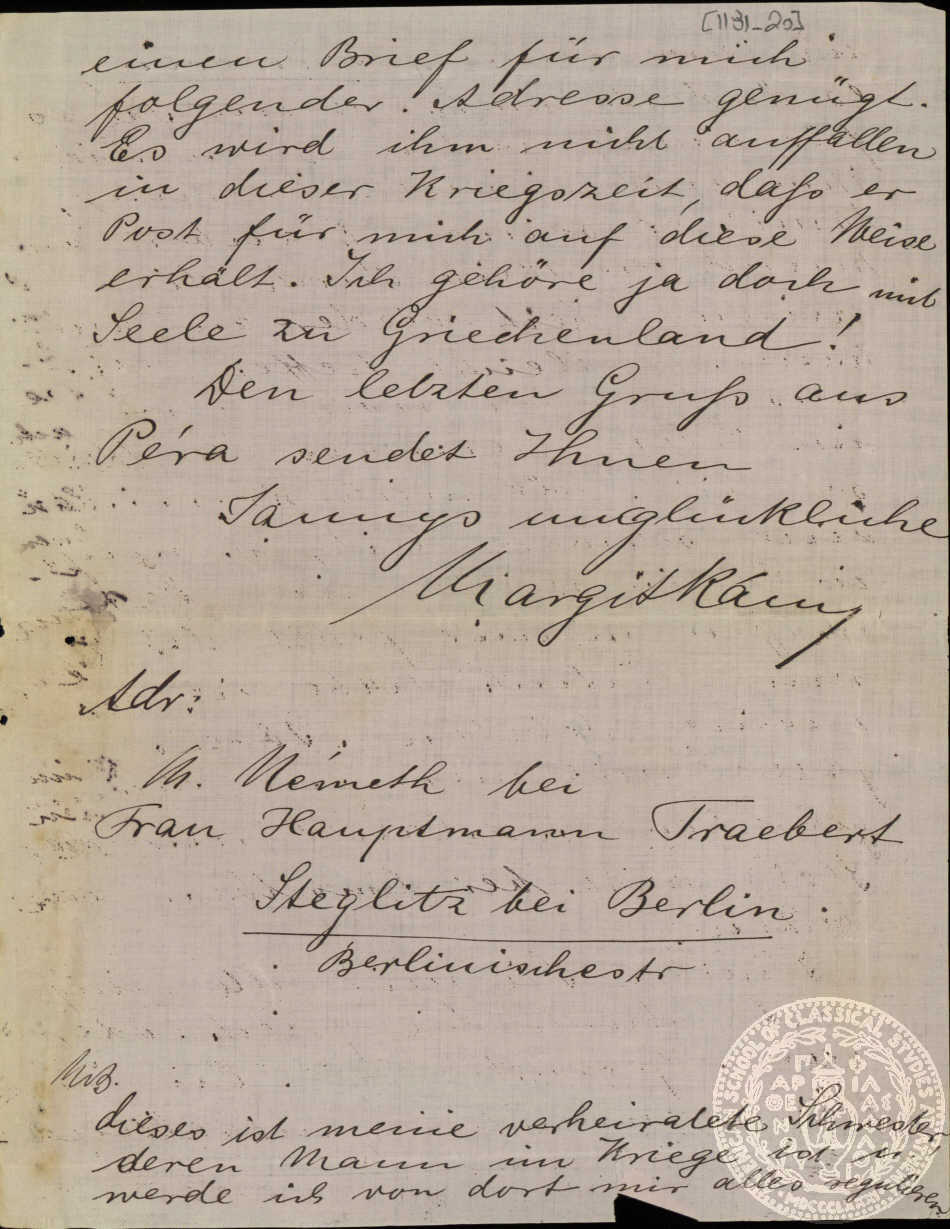 [1131-20]
einen Brief für mich
folgender Adresse genügt.
Es wird ihm nicht auffallen
in dieser Kriegszeit, daß er
Post für mich auf diese Weise
erhält. Ich gehöre ja doch mit
Seele zu Griechenland!
Den letzten Gruß aus
Péra sendet Ihnen
Jannys unglückliche
Margit Kámy
Adr:
M. Németh bei
Frau Hauptmann Traebert
Steglitz bei Berlin.
Berlinischestr
NB.
dieses ist meine verheiratete Schwester
deren Mann im Kriege ist u.
werde ich von dort mir alles regulieren.
SCHOOL OF CLASSICAL STUDIES
MDCCCLXXXI